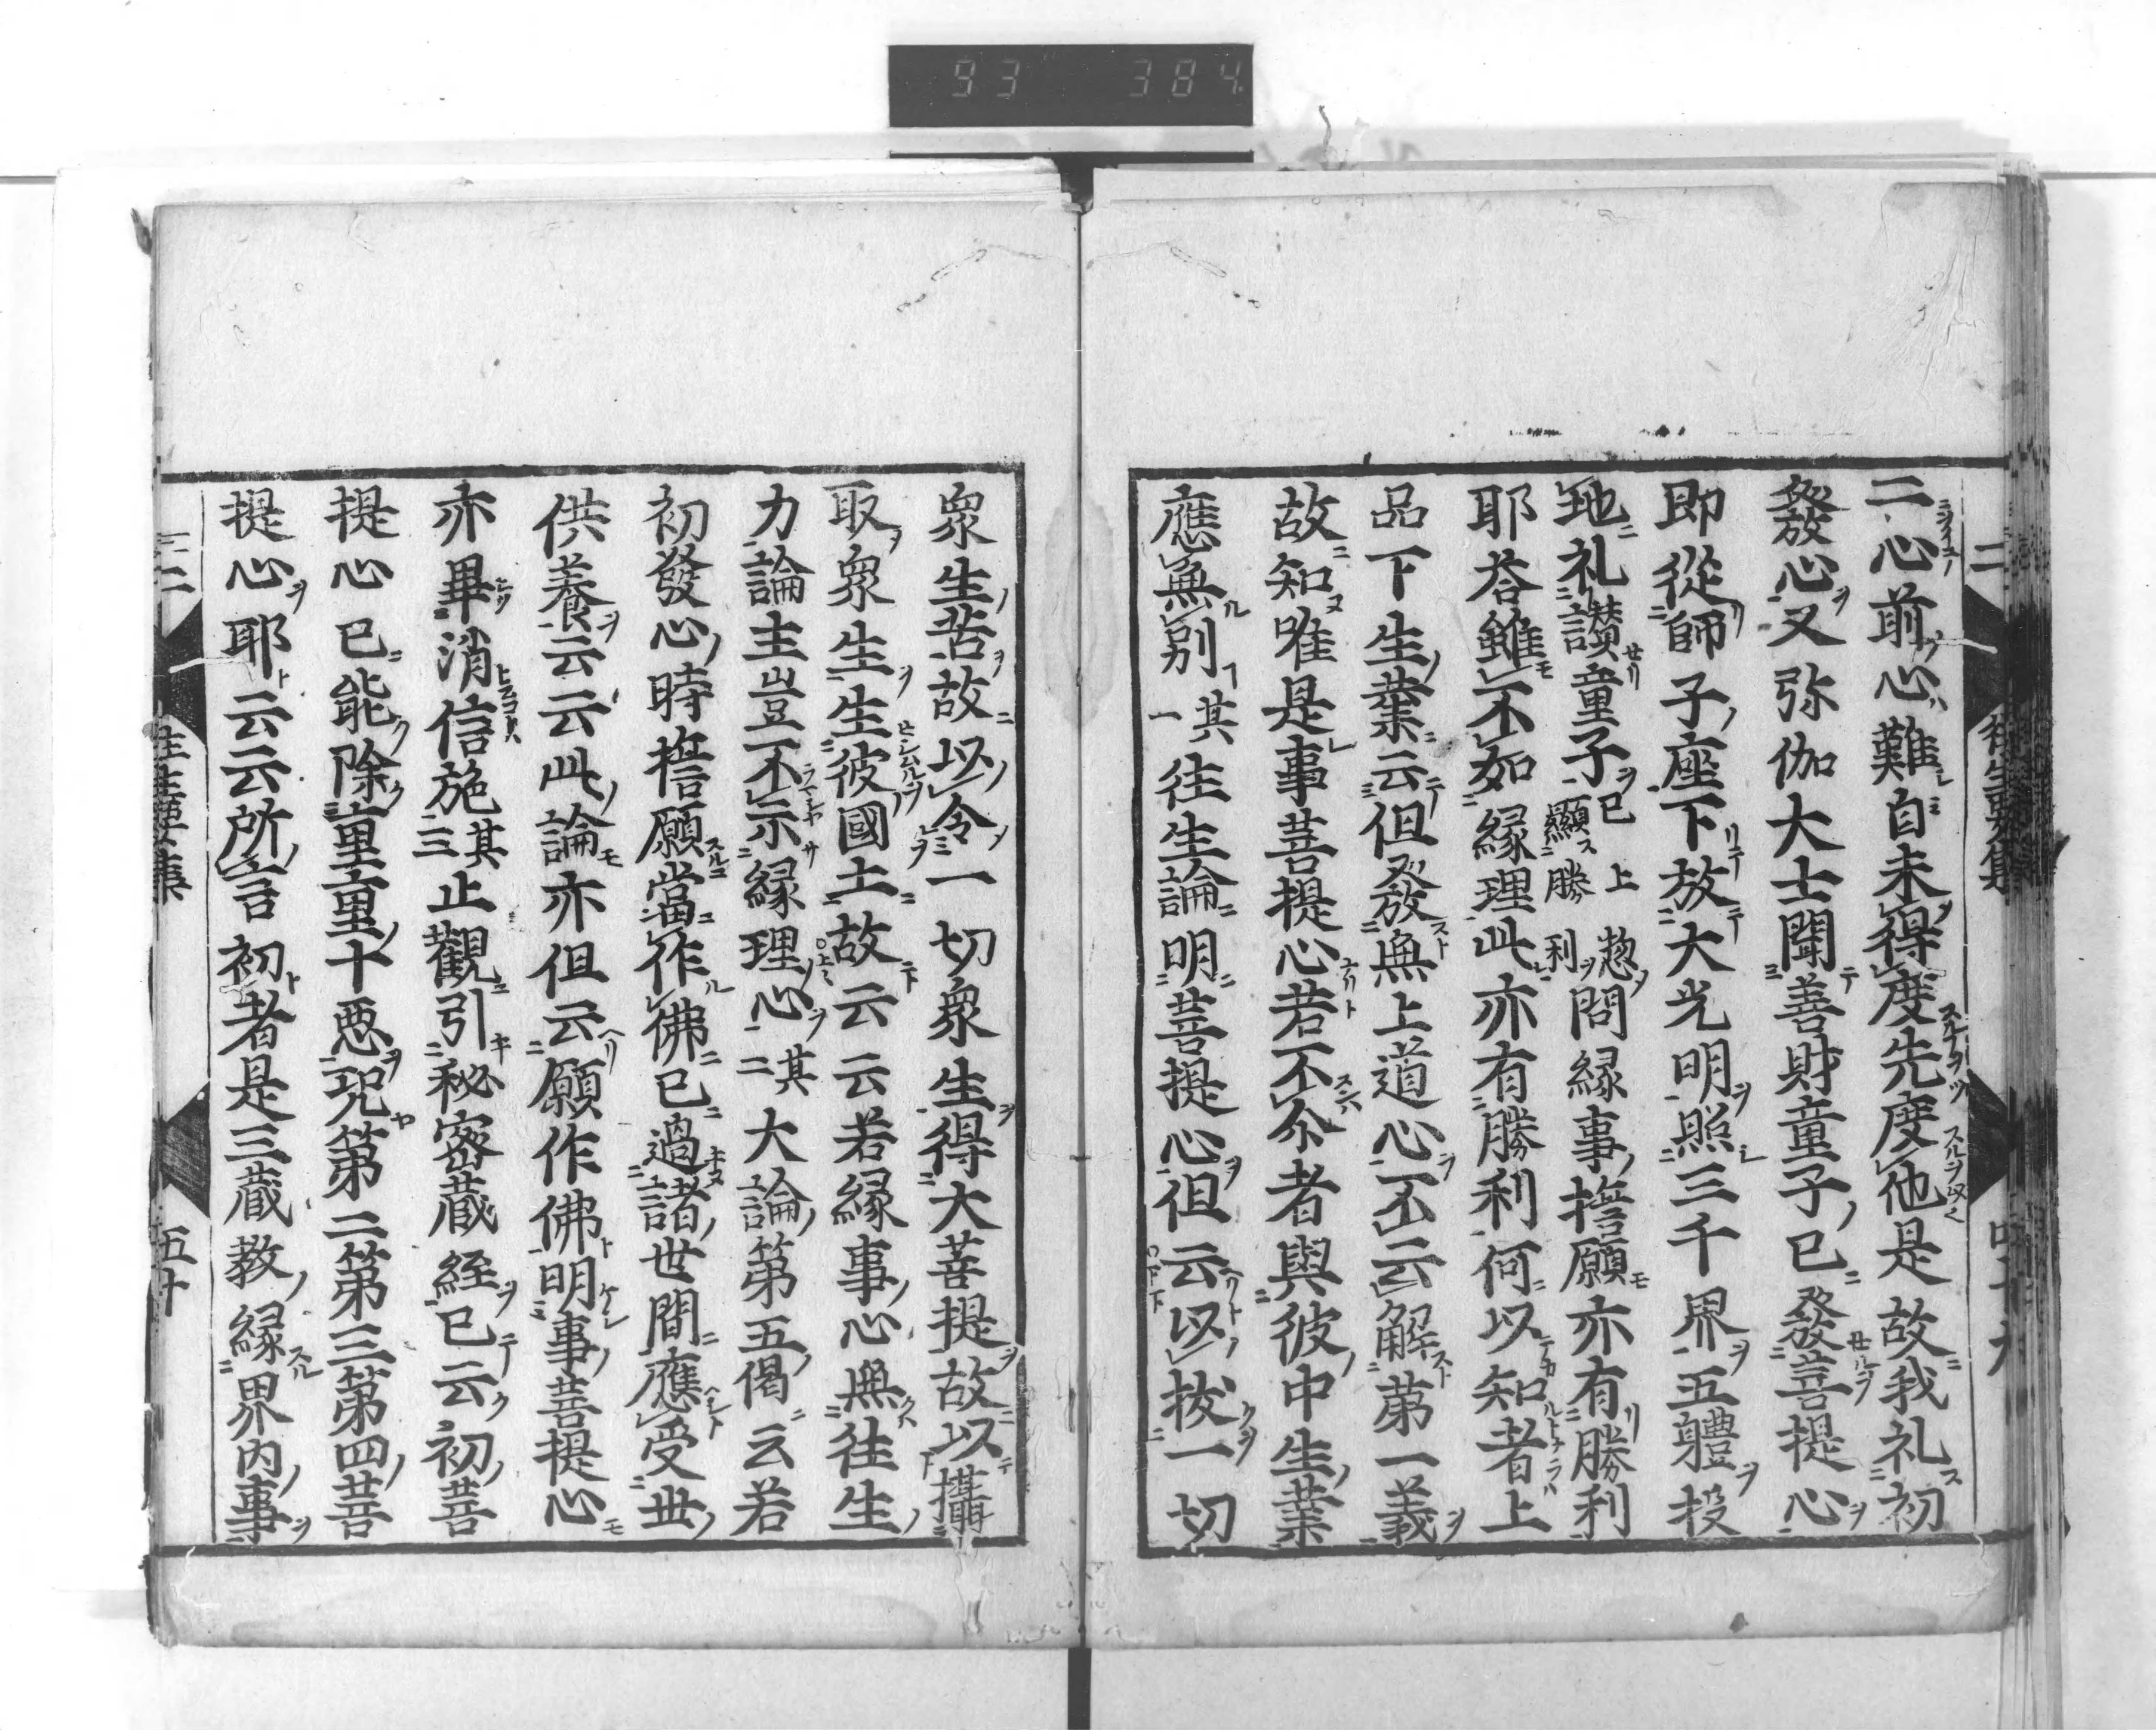 93 384
二心前心難自未得度先度他是故我礼初
發心又弥伽大士聞善財童子已發菩提心
即從師子座下放大光明照三千界五體投
地礼讃童子已上 惣顯勝利問縁事誓願亦有勝利
耶荅雖不如縁理此亦有勝利何以知者上
品下生業云但發無上道心不云解第一義
故知唯是事菩提心若不尒者與彼中生業
應無別其一往生論明菩提心但云以拔一切
衆生苦故以令一切衆生得大菩提故以攝
取衆生生彼國土故云云若縁事心無往生
力論主豈不示縁理心其二大論第五偈云若
初發心時誓願當作佛已過諸世間應受世
供養云云此論亦但云願作佛明事菩提心
亦畢消信施其三止觀引秘密蔵經已云初菩
提心已能除重重十悪况第二第三第四菩
提心耶云云所言初者是三蔵教縁界内事
二 往生要集 五十